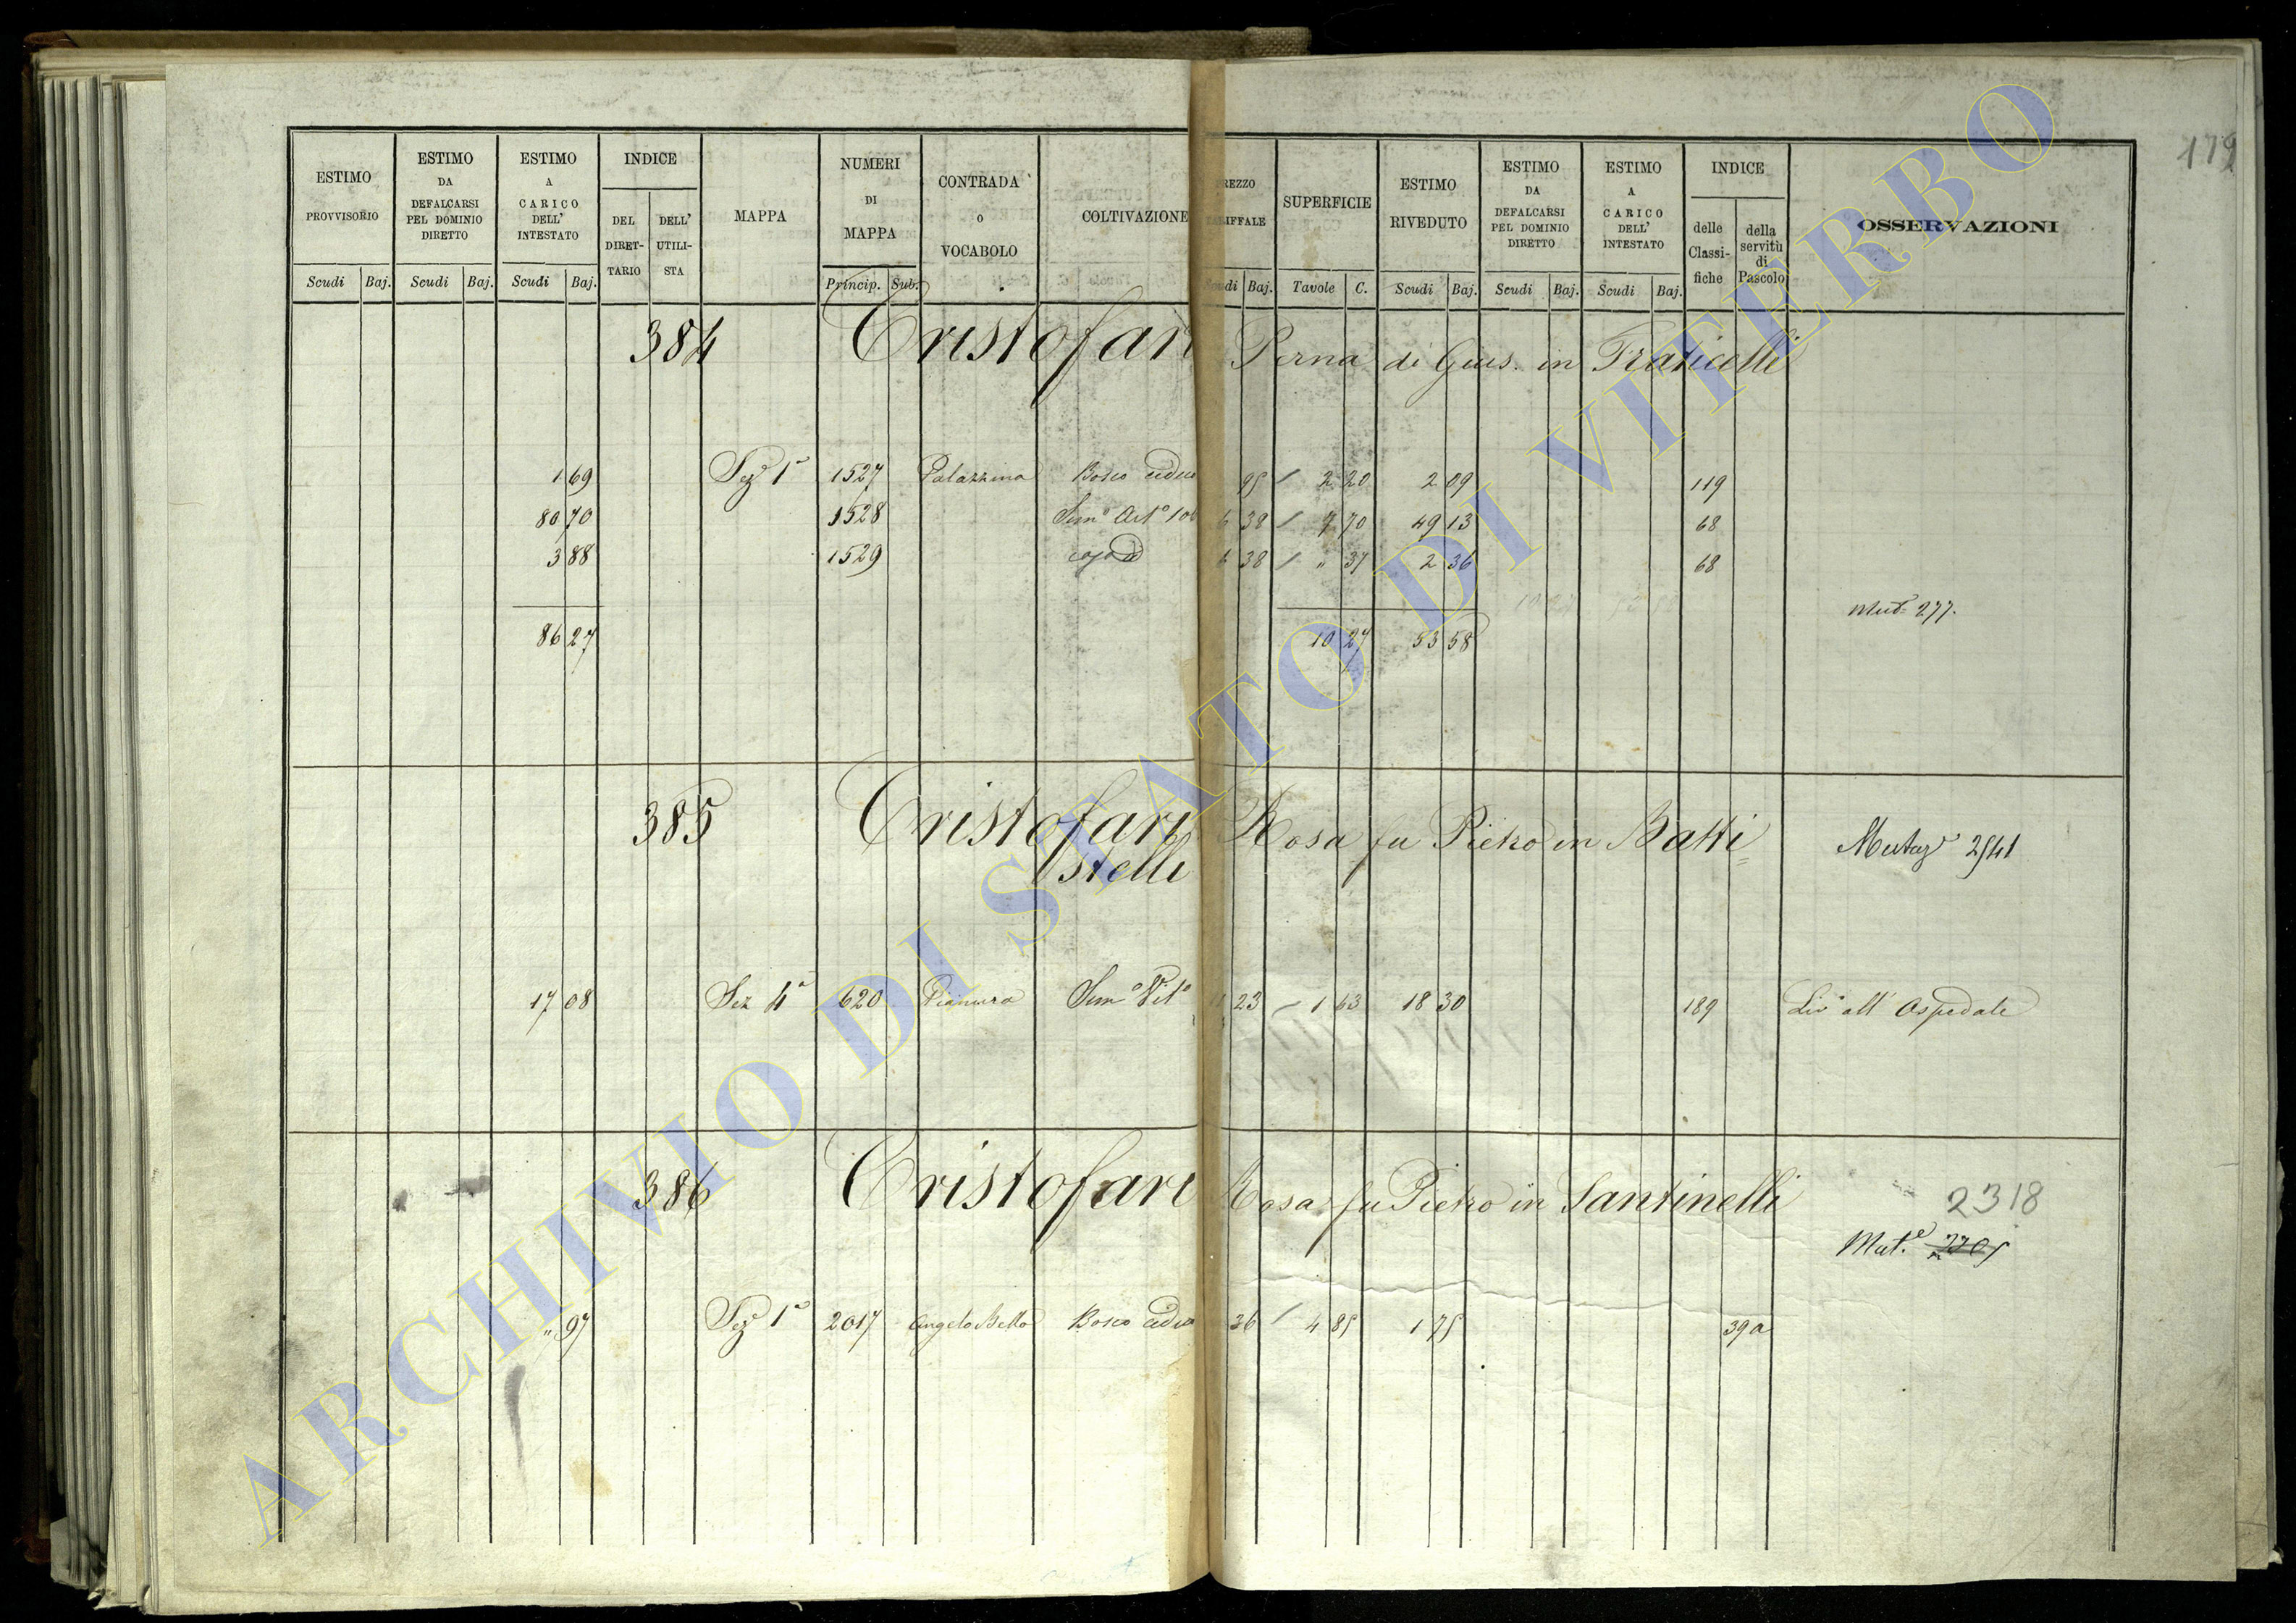 179
ESTIMO PROVVISORIO Scudi Baj.
ESTIMO DA DEFALCARSI PEL DOMINIO DIRETTO Scudi Baj.
ESTIMO A CARICO DELL' INTESTATO Scudi Baj.
INDICE DEL DIRETTARIO DELL' UTILISTA
MAPPA
NUMERI DI MAPPA Princip. Sub.
CONTRADA O VOCABOLO
COLTIVAZIONE
REZZO RIFFALE Baj.
SUPERFICIE Tavole C.
ESTIMO RIVEDUTO Scudi Baj.
ESTIMO DA DEFALCARSI PEL DOMINIO DIRETTO Scudi Baj.
ESTIMO A CARICO DELL' INTESTATO Scudi Baj.
INDICE delle Classifiche della servitù di Pascolo
OSSERVAZIONI
384 Cristofari Perna di Gius. in Fraticelli
1 69 Sez 1ª 1527 Palazzina Bosco ceduo 95 2 20 2 09 119
80 70 1528 Semº Artº 6 38 7 70 49 13 68
3 88 1529 6 38 " 37 2 36 68
Mut. 277.
86 27 10 27 53 58
385 Cristofari Rosa fu Pietro in Batti=
stelli
Mutaz 2541
17 08 Sez 4ª 620 Pianura Semº Vitº 23 1 63 18 30 189 Livº all' Ospedale
386 Cristofari Rosa fu Pietro in Santinelli
2318
Mut.e
" 97 Sez 1ª 2017 Angelo Bello Bosco ceduo 36 4 85 1 75 39a
ARCHIVIO DI STATO DI VITERBO